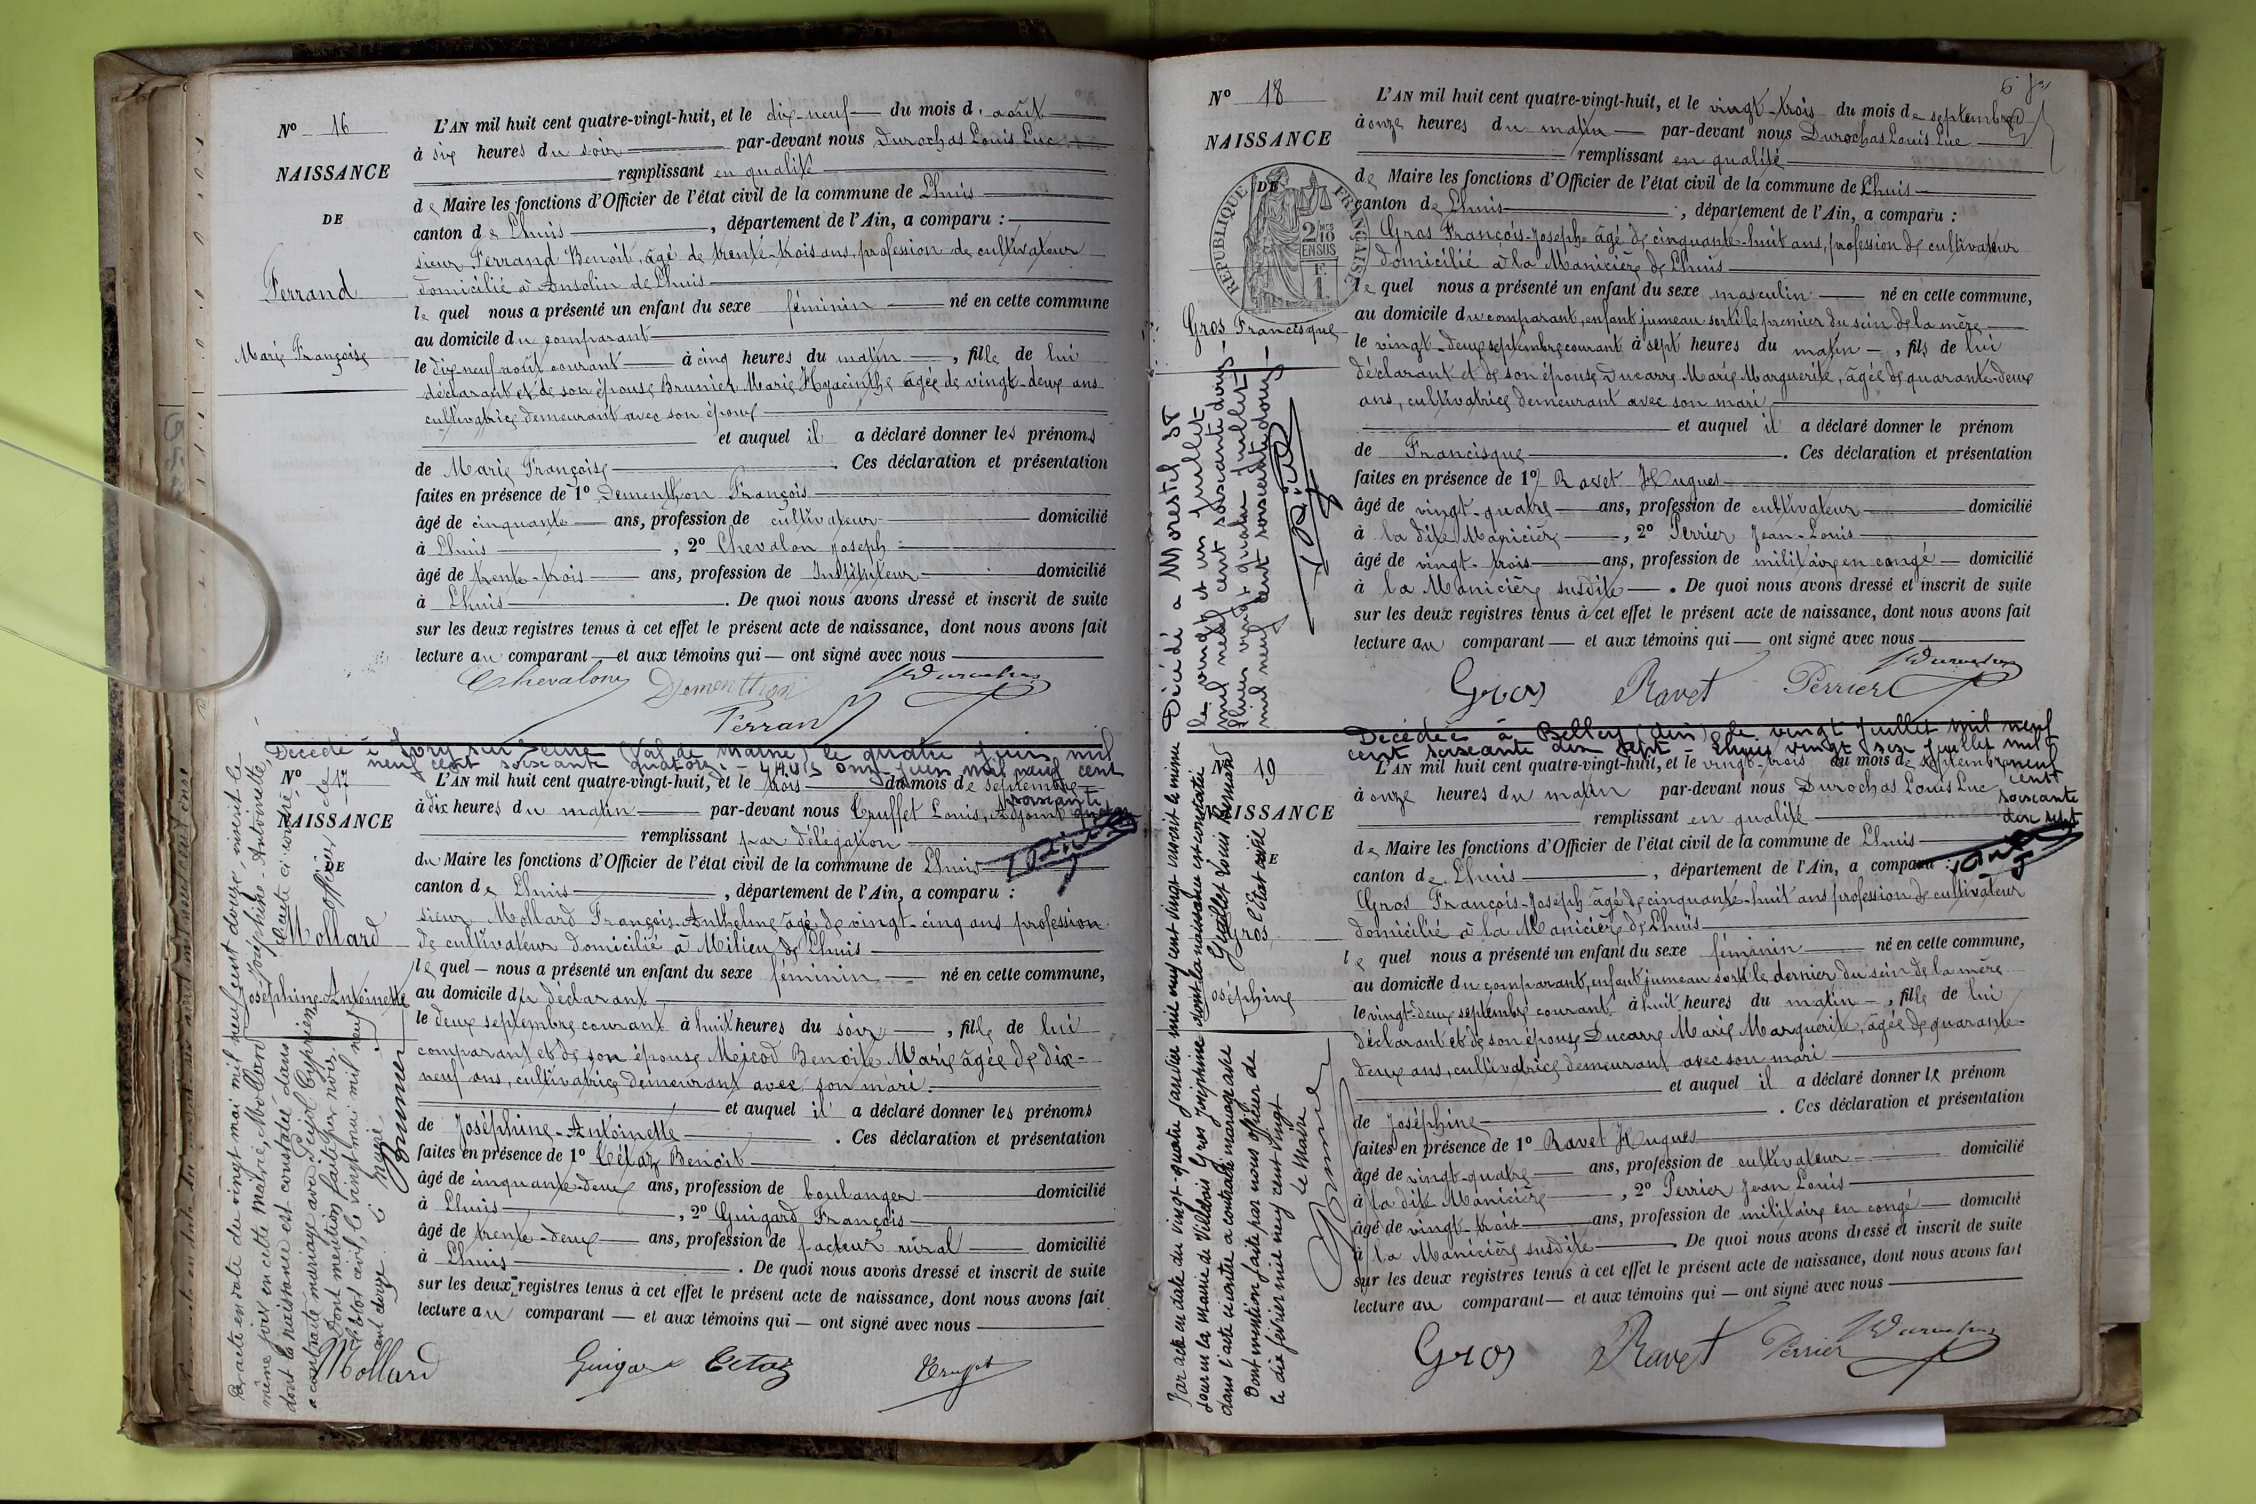 N° 16
NAISSANCE
DE
Ferrand
Marie Françoise
L'AN mil huit cent quatre-vingt-huit, et le dix-neuf du mois d'août
à six heures du soir par-devant nous Durochas Louis Luc
remplissant en qualité
de Maire les fonctions d'Officier de l'état civil de la commune de Lhuis
canton de Lhuis, département de l'Ain, a comparu :
sieur Ferrand Benoit, âgé de trente-trois ans, profession de cultivateur
domicilié à Ansolin de Lhuis
lequel nous a présenté un enfant du sexe féminin né en cette commune
au domicile du comparant
le dix neuf août courant à cinq heures du matin, fille de lui
déclarant et de son épouse Brunier Marie Hyacinthe âgée de vingt-deux ans
cultivatrice demeurant avec son époux
et auquel il a déclaré donner les prénoms
de Marie Françoise. Ces déclaration et présentation
faites en présence de 1° Dementhon François
âgé de cinquante ans, profession de cultivateur domicilié
à Lhuis, 2° Chevalon Joseph
âgé de trente-trois ans, profession de Instituteur domicilié
à Lhuis. De quoi nous avons dressé et inscrit de suite
sur les deux registres tenus à cet effet le présent acte de naissance, dont nous avons fait
lecture au comparant et aux témoins qui ont signé avec nous
Chevalon Dementhon Durochas
Ferrand
Décédée à Ivry sur Seine (Val de Marne) le quatre juin mil
neuf cent soixante quatorze - Lhuis onze juin mil neuf cent
soixante quatorze
N° 17
NAISSANCE
DE
Mollard
Joséphine-Antoinette
L'AN mil huit cent quatre-vingt-huit, et le trois du mois de septembre
à dix heures du matin par-devant nous Truffet Louis, Adjoint
remplissant par délégation
du Maire les fonctions d'Officier de l'état civil de la commune de Lhuis
canton de Lhuis, département de l'Ain, a comparu :
sieur Mollard François-Anthelme âgé de vingt-cinq ans profession
de cultivateur domicilié à Milieu de Lhuis
lequel nous a présenté un enfant du sexe féminin né en cette commune,
au domicile du déclarant
le deux septembre courant à huit heures du soir, fille de lui
comparant et de son épouse Meicod Benoite Marie âgée de dix-
neuf ans, cultivatrice demeurant avec son mari
et auquel il a déclaré donner les prénoms
de Joséphine-Antoinette. Ces déclaration et présentation
faites en présence de 1° Cétaz Benoit
âgé de cinquante-deux ans, profession de boulanger domicilié
à Lhuis, 2° Guigard François
âgé de trente-deux ans, profession de facteur rural domicilié
à Lhuis. De quoi nous avons dressé et inscrit de suite
sur les deux registres tenus à cet effet le présent acte de naissance, dont nous avons fait
lecture au comparant et aux témoins qui ont signé avec nous
Mollard Guigard Cétaz Truffet
Par acte en date du vingt mai mil neuf cent douze, inscrit le
même jour en cette mairie, Mollard Joséphine-Antoinette,
dont la naissance est constatée dans l'acte ci contre
a contracté mariage avec Cyprien
Dont mention faite par nous, officier de
l'état civil, le vingt mai mil neuf
cent douze. Le Maire
N° 18
NAISSANCE
DE
RÉPUBLIQUE FRANÇAISE
2/10 EN SUS
Gros Francisque
L'AN mil huit cent quatre-vingt-huit, et le vingt-trois du mois de septembre
à onze heures du matin par-devant nous Durochas Louis Luc
remplissant en qualité
de Maire les fonctions d'Officier de l'état civil de la commune de Lhuis
canton de Lhuis, département de l'Ain, a comparu :
Gros François-Joseph âgé de cinquante-huit ans, profession de cultivateur
domicilié à la Manicière de Lhuis
lequel nous a présenté un enfant du sexe masculin né en cette commune,
au domicile du comparant, enfant jumeau sorti le premier du sein de la mère
le vingt-deux septembre courant à sept heures du matin, fils de lui
déclarant et de son épouse Ducarre Marie Marguerite, âgée de quarante-deux
ans, cultivatrice demeurant avec son mari
et auquel il a déclaré donner le prénom
de Francisque. Ces déclaration et présentation
faites en présence de 1° Ravet Hugues
âgé de vingt-quatre ans, profession de cultivateur domicilié
à la dite Manicière, 2° Perrier Jean-Louis
âgé de vingt-trois ans, profession de militaire en congé domicilié
à la Manicière susdite. De quoi nous avons dressé et inscrit de suite
sur les deux registres tenus à cet effet le présent acte de naissance, dont nous avons fait
lecture au comparant et aux témoins qui ont signé avec nous
Gros Ravet Perrier Durochas
Décédé à Morestel
le vingt et un juillet
mil neuf cent soixante douze
Lhuis vingt quatre juillet
mil neuf cent soixante douze
Décédée à Belley (Ain) le vingt juillet mil neuf
cent soixante dix sept - Lhuis vingt six juillet mil
neuf cent soixante dix sept
N° 19
NAISSANCE
DE
Gros
Joséphine
L'AN mil huit cent quatre-vingt-huit, et le vingt-trois du mois de septembre
à onze heures du matin par-devant nous Durochas Louis Luc
remplissant en qualité
de Maire les fonctions d'Officier de l'état civil de la commune de Lhuis
canton de Lhuis, département de l'Ain, a comparu :
Gros François-Joseph âgé de cinquante-huit ans profession de cultivateur
domicilié à la Manicière de Lhuis
lequel nous a présenté un enfant du sexe féminin né en cette commune,
au domicile du comparant, enfant jumeau sorti le dernier du sein de la mère
le vingt-deux septembre courant à huit heures du matin, fille de lui
déclarant et de son épouse Ducarre Marie Marguerite, âgée de quarante-
deux ans, cultivatrice demeurant avec son mari
et auquel il a déclaré donner le prénom
de Joséphine. Ces déclaration et présentation
faites en présence de 1° Ravet Hugues
âgé de vingt-quatre ans, profession de cultivateur domicilié
à la dite Manicière, 2° Perrier Jean Louis
âgé de vingt-trois ans, profession de militaire en congé domicilié
à la Manicière susdite. De quoi nous avons dressé et inscrit de suite
sur les deux registres tenus à cet effet le présent acte de naissance, dont nous avons fait
lecture au comparant et aux témoins qui ont signé avec nous
Gros Ravet Perrier Durochas
Par acte en date du vingt-quatre janvier mil neuf cent vingt inscrit le même
jour en la mairie de Villebois Gros Joséphine dont la naissance est constatée
dans l'acte ci contre a contracté mariage avec Louis
Dont mention faite par nous officier de l'état civil
le dix février mil neuf cent vingt
Le Maire